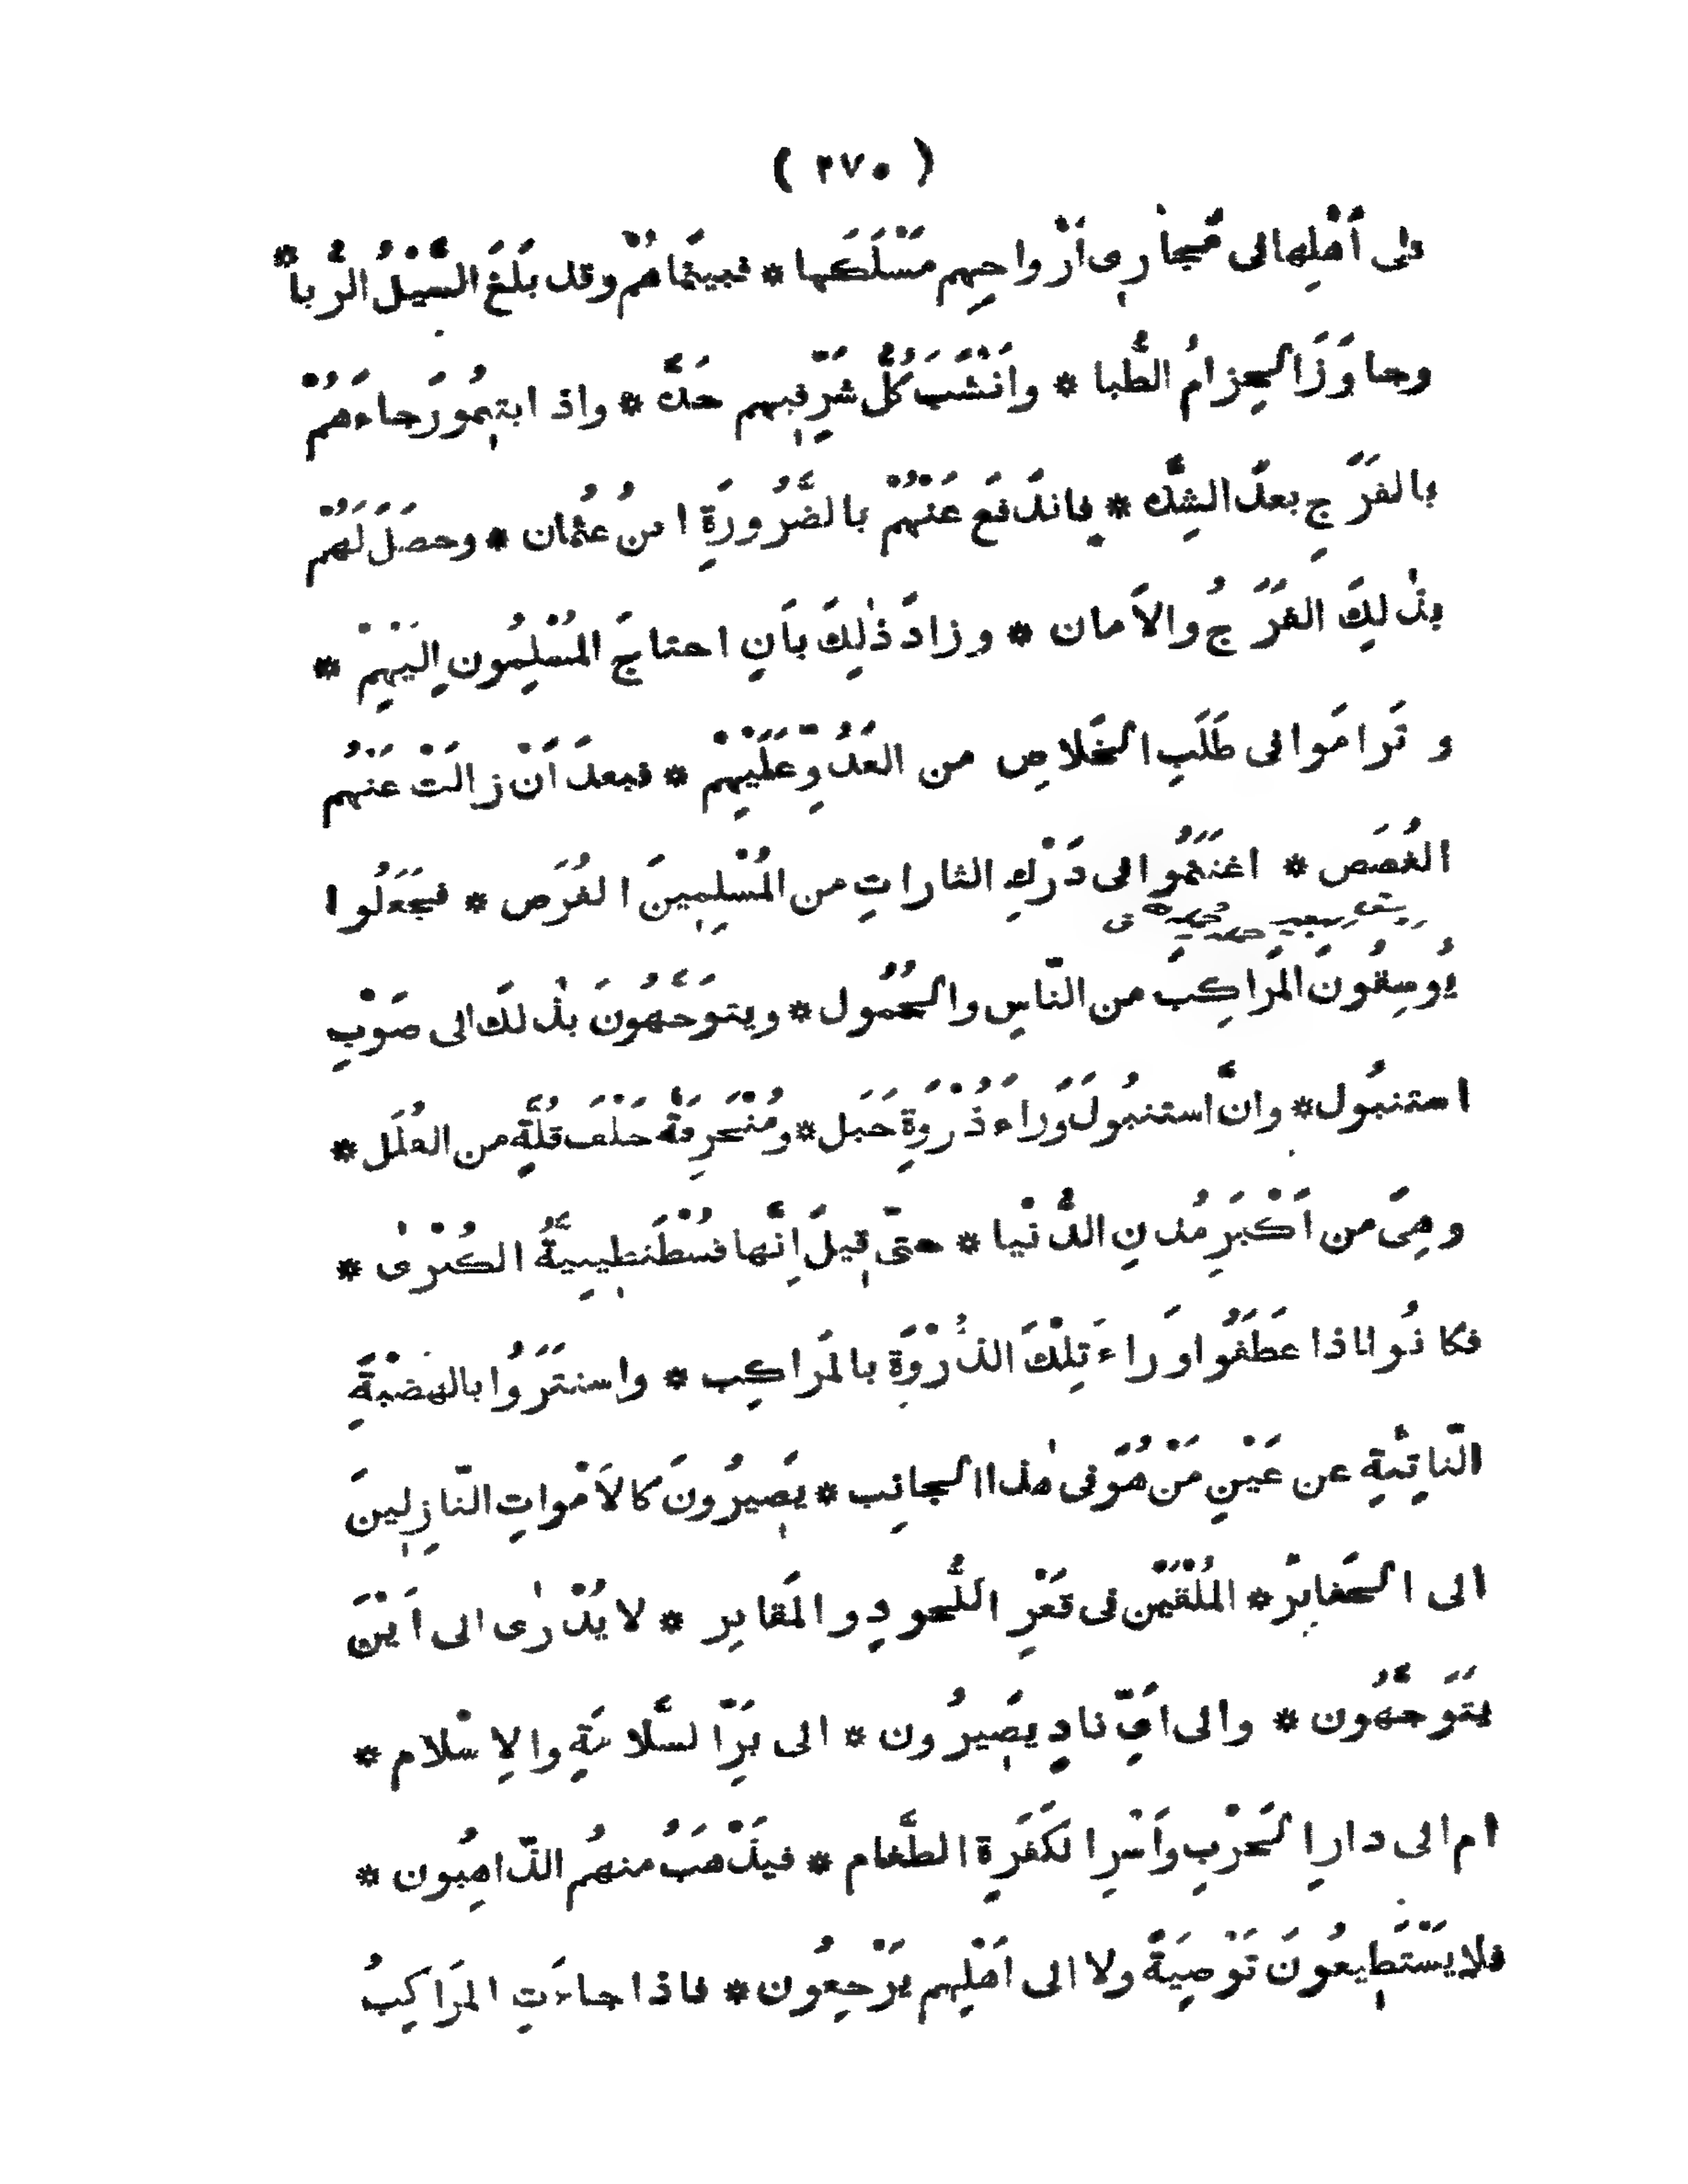 ( ٢٧٠ )
فى أَهْلِها الى مَجارِى أَرْواحِهم مَسْلَكَها * فبينَما هُمْ وقد بَلَغَ السَّيْلُ الرُّبا *
وجاوَزَ الحِزامُ الطُّبا * وانْشَبَ كُلُّ شَرٍّ فِيهم حَدَّه * واذ ابتِيمُورَ جاءهُمْ
بالفَرَجِ بعدَ الشِّدَّه * فاندَفَعَ عَنْهُمْ بالضَّرُورَةِ ابنُ عُثمان * وحصَلَ لَهُمْ
بذٰلِكَ الفَرَجُ والاَمان * وزادَ ذٰلِكَ بأَنِ احتاجَ المُسْلِمُون اِلَيْهِمْ *
وتَرامَوا فى طَلَبِ الخَلاصِ من العَدُوِّ عَلَيْهِمْ * فبعدَ اَنْ زالَتْ عَنْهُم
الغُصَص * اغتَنَمُوا فى دَرْكِ الثاراتِ من المُسْلِمِينَ الفُرَص * فجَعَلُوا
يُوسِقُونَ المَراكِبَ من النّاسِ والحُمُول * ويتوَجَّهُونَ بذٰلكَ الى صَوْبِ
استنبُول * وانَّ استنبُولَ وَراءَ ذُرْوَةِ جَبَل * ومُنْحَرِفَةٌ خَلْفَ قُلَّةٍ من القُلَل *
وهِىَ من اَكْبَرِ مُدنِ الدُّنْيا * حتّى قِيلَ اِنَّها قُسْطَنطِينِيَّةُ الكُبْرٰى *
فكانُوا اذا عطَفُوا وَراءَ تِلْكَ الذُّرْوَةِ بالمَراكِب * واستَتَرُوا بالهَضْبَةِ
النّاتِئَةِ عن عَيْنِ مَنْ هُوَ فى هٰذا الجانِب * يَصِيرُونَ كالاَمْواتِ النّازِلِينَ
الى الحَفايِرْ * المُلْقَيْنَ فى قَعْرِ اللُّحودِ والمَقابِر * لا يُدْرٰى الى اَيْنَ
يَتَوَجَّهُون * والى اَىِّ نادٍ يَصِيرُون * الى بَرِّ السَّلامَةِ والاِسْلام *
ام الى دارِ الحَرْبِ وأَسْرِ الكَفَرَةِ الطَّغام * فيَذْهَبُ منهُم الذّاهِبُون *
فلا يَسْتَطِيعُونَ تَوْصِيَةً ولا الى اَهْلِهم يَرْجِعُون * فاذا جاءَتِ المَراكِبُ